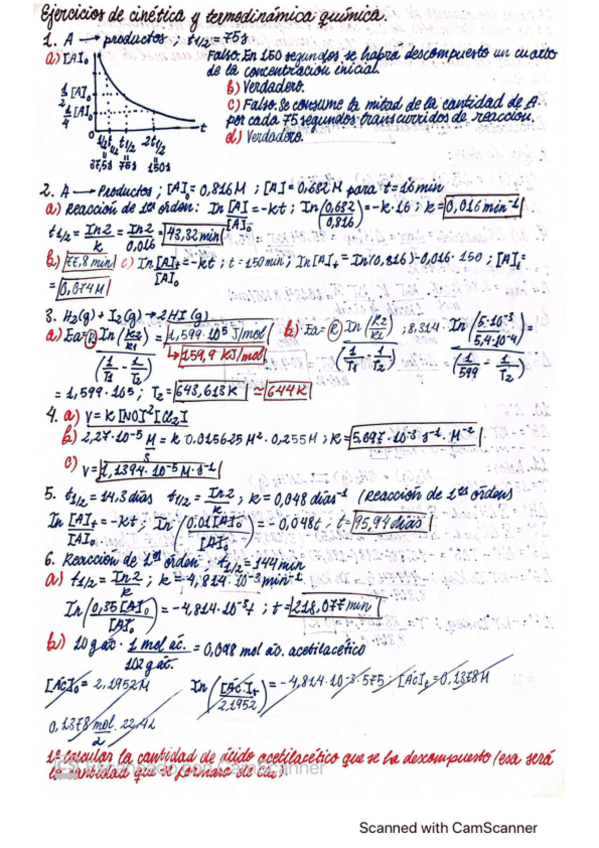 Ejercicios de cinética y termodinámica química.
1. A → productos ; t1/2 = 75s
a) [A]₀
1/2 [A]₀
1/4 [A]₀
0 1/2t1/2 t1/2 2t1/2 t
37,5s 75s 150s
Falso. En 150 segundos se habrá descompuesto un cuarto
de la concentración inicial.
b) Verdadero.
c) Falso. Se consume la mitad de la cantidad de A
por cada 75 segundos transcurridos de reacción.
d) Verdadero.
2. A → Productos ; [A]₀ = 0,816M ; [A] = 0,632M para t = 16 min
a) Reacción de 1er orden: ln [A]/[A]₀ = -kt ; ln (0,632/0,816) = -k·16 ; k = 0,016 min⁻¹
t1/2 = ln2/k = ln2/0,016 = 43,32 min
b) 77,8 min c) ln [A]/[A]₀ = -kt ; t = 150 min ; ln[A]t = ln(0,816) - 0,016·150 ; [A]t =
= 0,074M
3. H₂(g) + I₂(g) → 2HI (g)
a) Ea = R ln (k2/k1) / (1/T1 - 1/T2) = 1,599·10⁵ J/mol b) Ea = R ln (k2/k1) / (1/T1 - 1/T2) ; 8,314· ln (5·10⁻³/5,4·10⁻⁴) / (1/599 - 1/T2) =
↳ 159,9 kJ/mol
= 1,599·10⁵ ; T2 = 643,613K ≃ 644K
4. a) V = k [NO]²[Cl₂]
b) 2,27·10⁻⁵ M/s = k 0,015625 M²·0,255M ; k = 5,697·10⁻³ s⁻¹·M⁻²
c) V = 1,1394·10⁻⁵ M·s⁻¹
5. t1/2 = 14,3 días t1/2 = ln2/k ; k = 0,048 días⁻¹ (Reacción de 1er orden)
ln [A]t/[A]₀ = -kt ; ln (0,01[A]₀/[A]₀) = -0,048t ; t = 95,94 días
6. Reacción de 1er orden ; t1/2 = 144 min
a) t1/2 = ln2/k ; k = 4,814·10⁻³ min⁻¹
ln (0,35[A]₀/[A]₀) = -4,814·10⁻³t ; t = 218,077 min
b) 10 g ác · 1 mol ác./102 g ác. = 0,098 mol ác. acetilacético
[Ac]₀ = 2,1952M ln ([Ac]t/2,1952) = -4,814·10⁻³·575 ; [Ac]t = 0,1378M
0,1378 mol · 22,4L / 2
1º Calcular la cantidad de ácido acetilacético que se ha descompuesto (esa será
la cantidad que se formará de CO₂).
Escaneado con CamScanner
Scanned with CamScanner